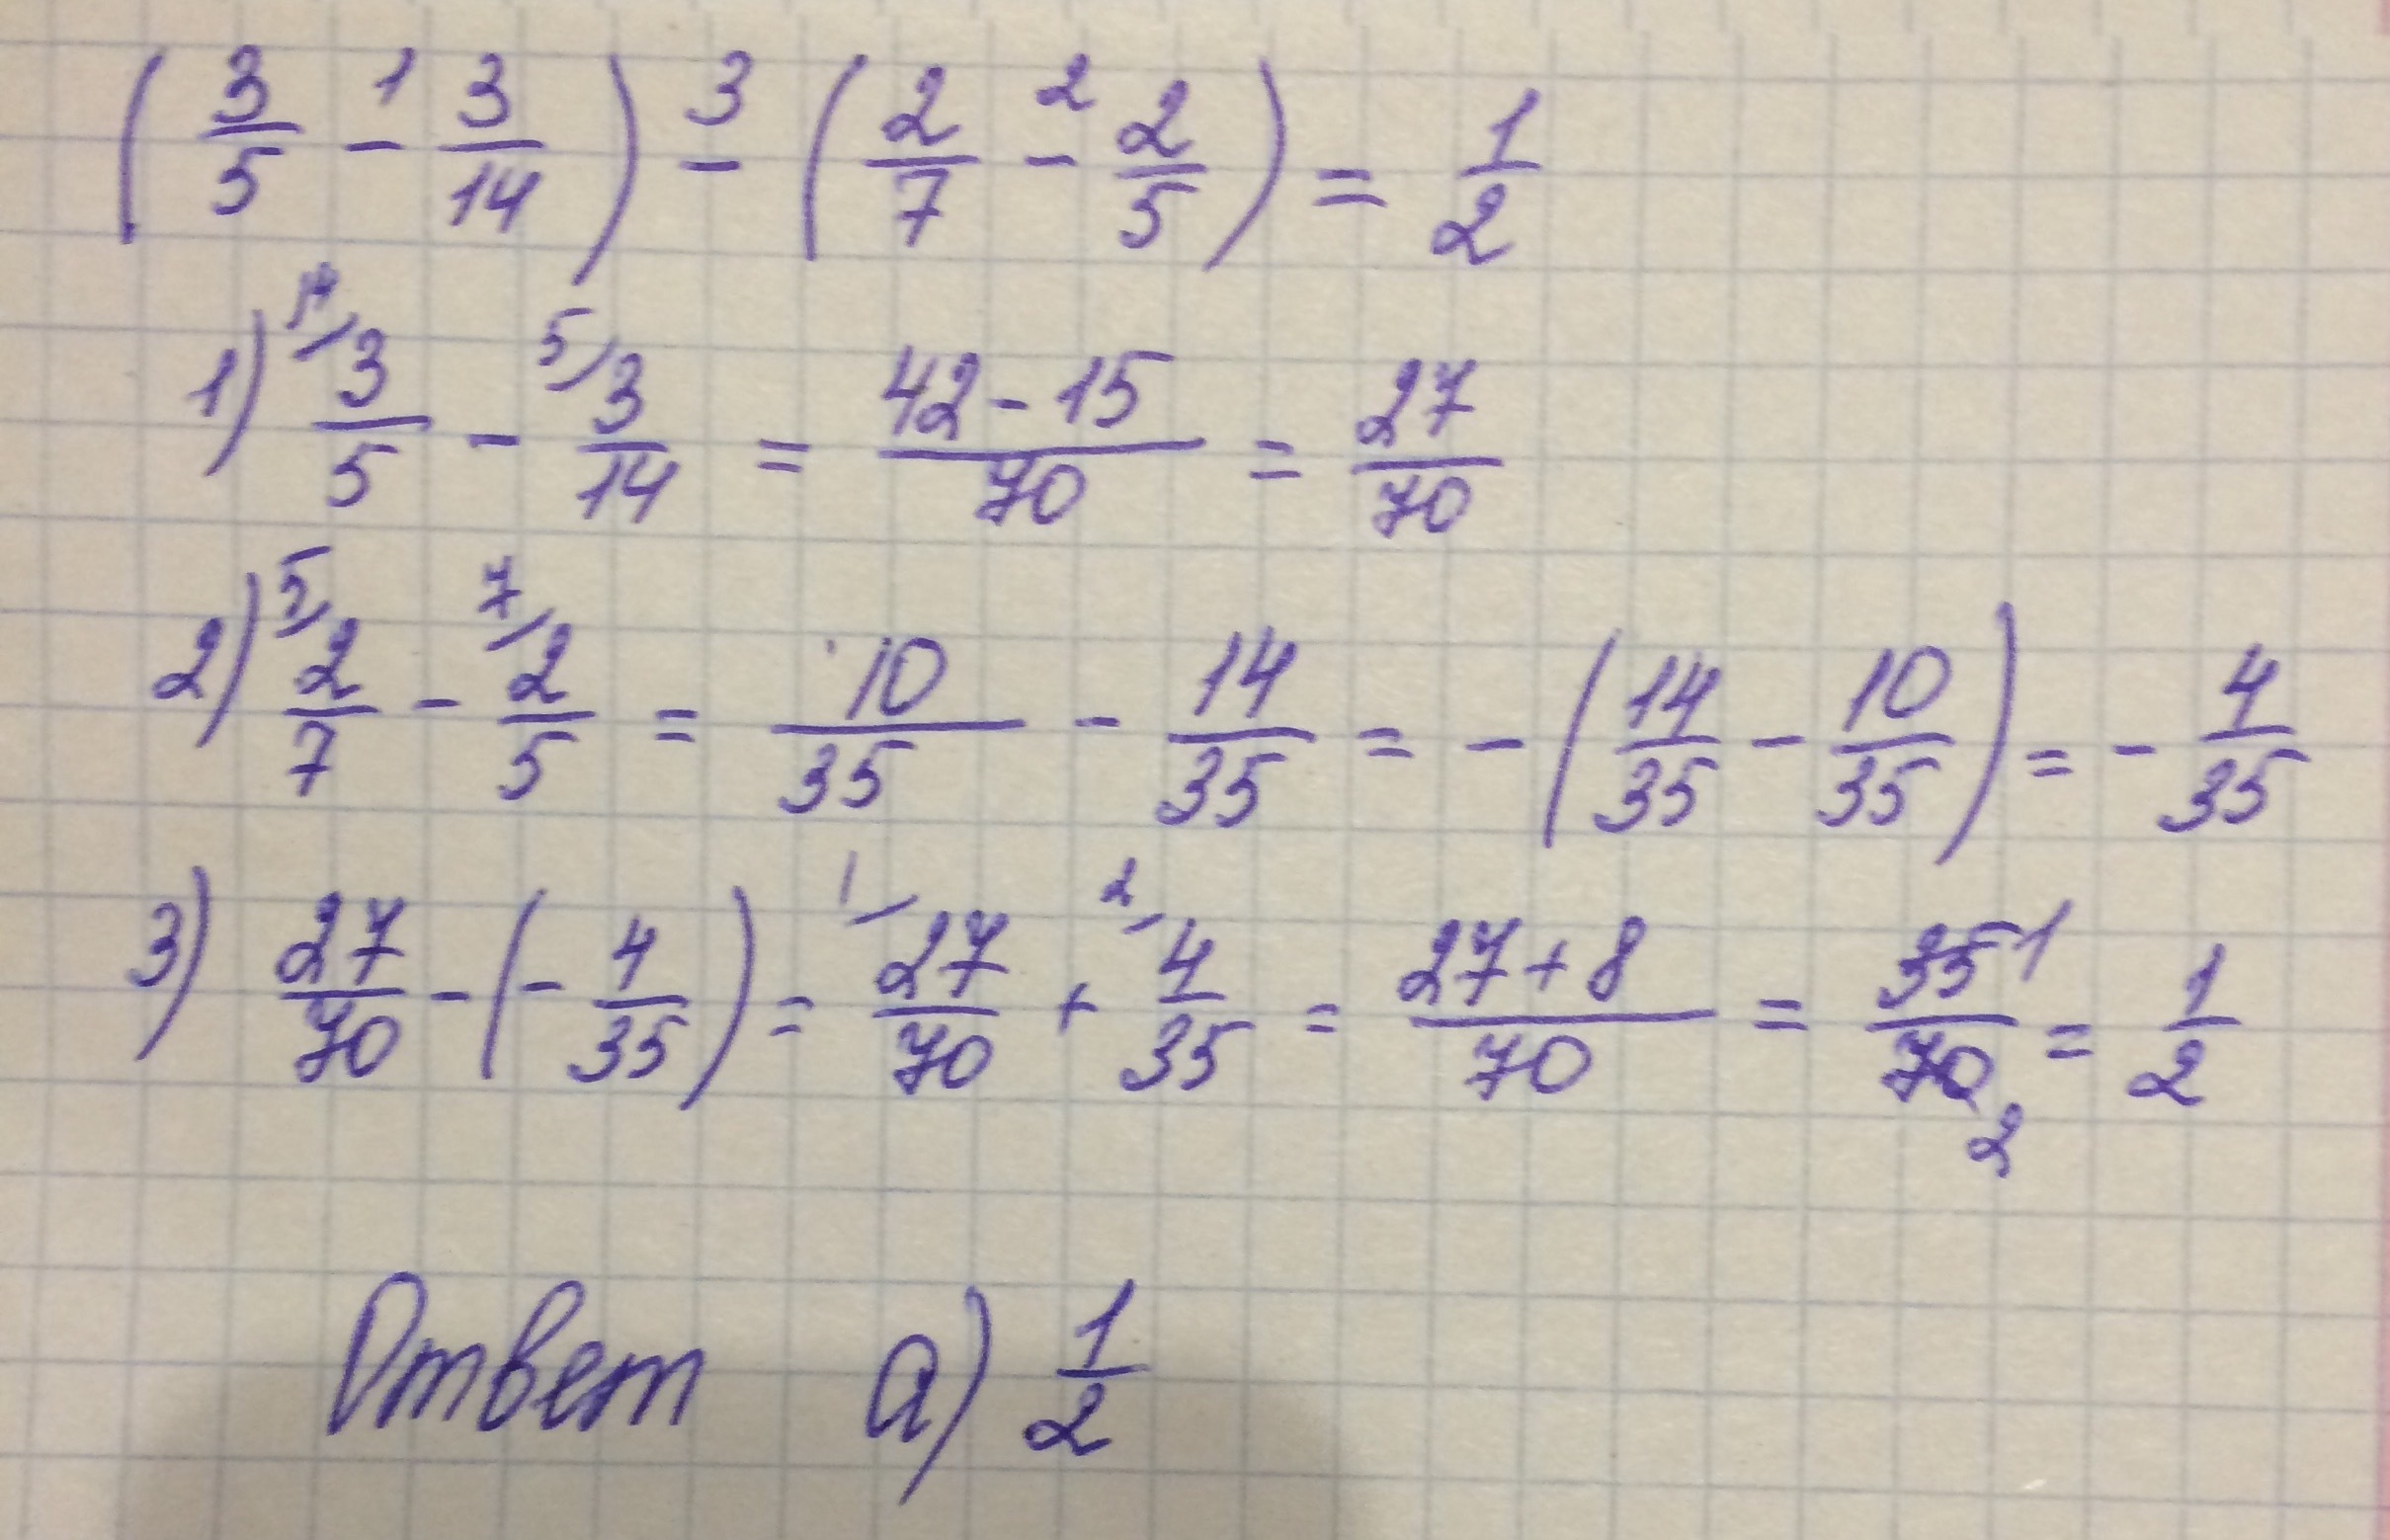 ( 3/5 -¹ 3/14 ) -³ ( 2/7 -² 2/5 ) = 1/2
1) ¹⁴/3/5 - ⁵/3/14 = 42-15/70 = 27/70
2) ⁵/2/7 - ⁷/2/5 = 10/35 - 14/35 = - ( 14/35 - 10/35 ) = - 4/35
3) 27/70 - ( - 4/35 ) = ¹/27/70 + ²/4/35 = 27+8/70 = 35¹/70₂ = 1/2
Ответ а) 1/2